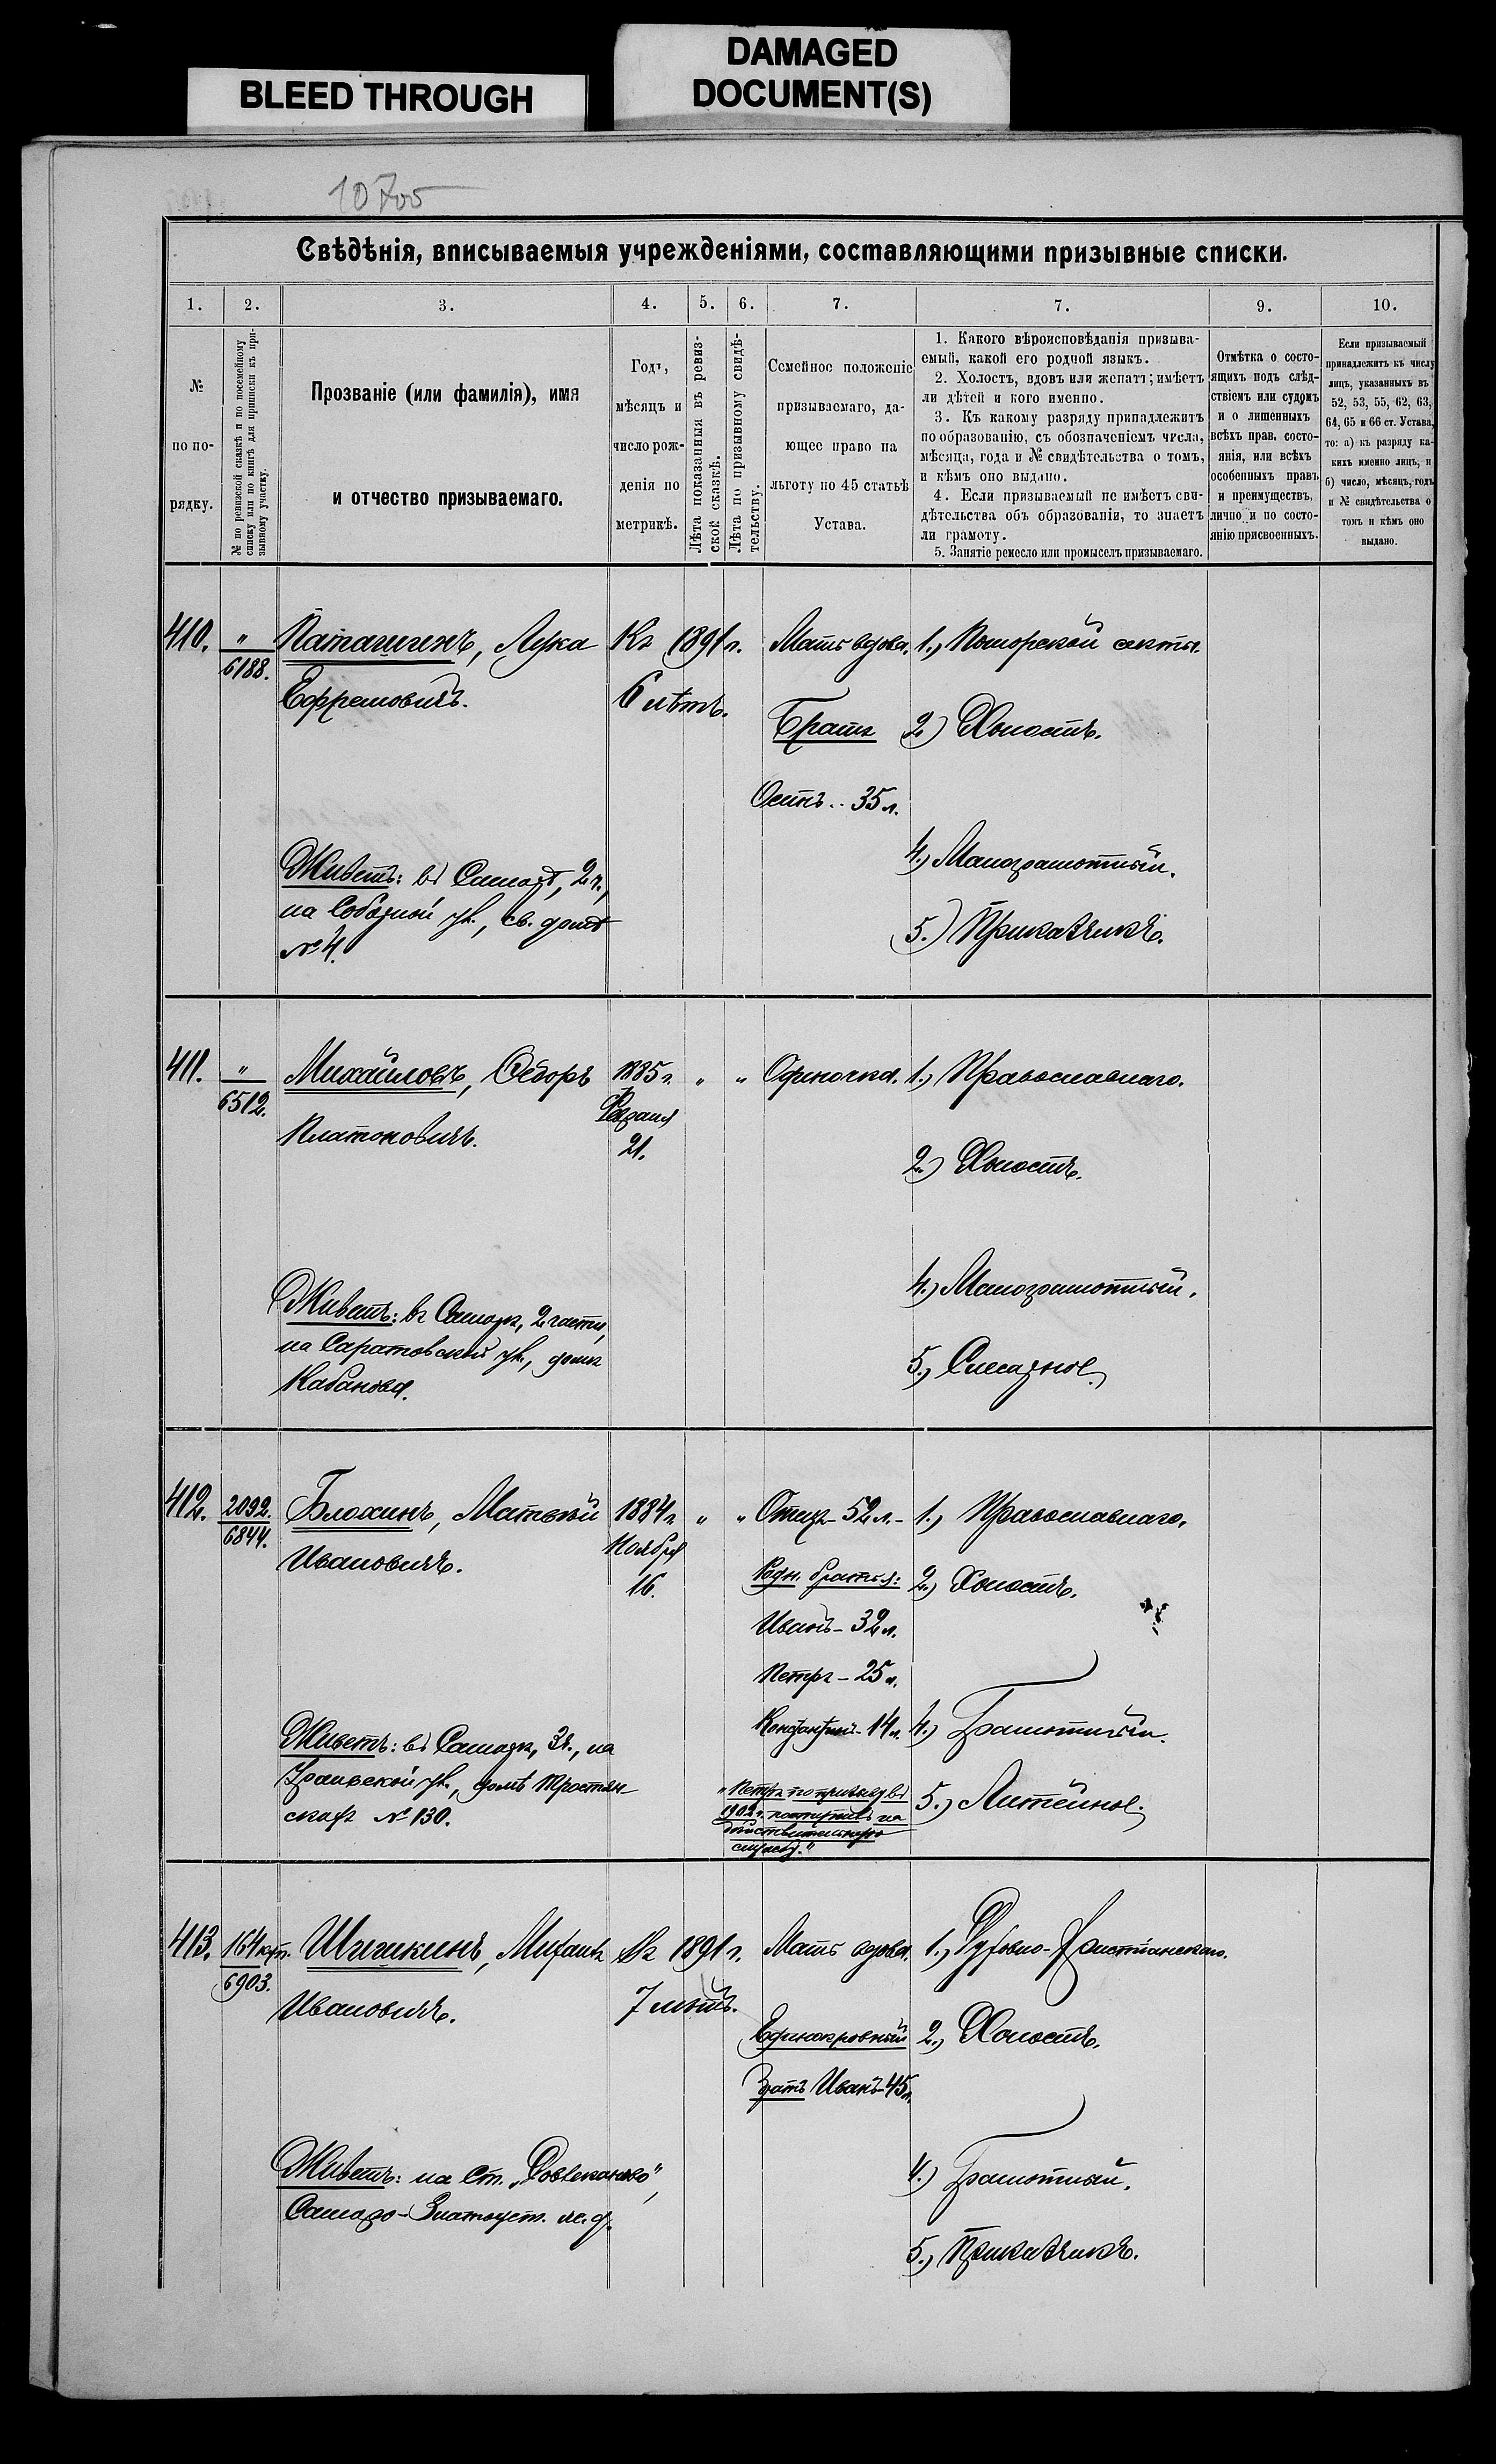 BLEED THROUGH
DAMAGED
DOCUMENT(S)
Свѣдѣнія, вписываемыя учрежденіями, составляющими призывные списки.
1. 2. 3. 4. 5. 6. 7. 7. 9. 10.
№
по по-
рядку.
№ по ревизской сказкѣ и по посемейному
списку или по книгѣ для приписки къ при-
зывному участку.
Прозваніе (или фамилія), имя
и отчество призываемаго.
Годъ,
мѣсяцъ и
число рож-
денія по
метрикѣ.
Лѣта показанныя въ ревиз-
ской сказкѣ.
Лѣта по призывному свидѣ-
тельству.
Семейное положеніе
призываемаго, да-
ющее право на
льготу по 45 статьѣ
Устава.
1. Какого вѣроисповѣданія призыва-
емый, какой его родной языкъ.
2. Холостъ, вдовъ или женатъ; имѣетъ
ли дѣтей и кого именно.
3. Къ какому разряду принадлежитъ
по образованію, съ обозначеніемъ числа,
мѣсяца, года и № свидѣтельства о томъ,
и кѣмъ оно выдано.
4. Если призываемый не имѣетъ сви-
дѣтельства объ образованіи, то знаетъ
ли грамоту.
5. Занятіе ремесло или промыселъ призываемаго.
Отмѣтка о состо-
ящихъ подъ слѣд-
ствіемъ или судомъ
и о лишенныхъ
всѣхъ прав. состо-
янія, или всѣхъ
особенныхъ правъ
и преимуществъ,
лично и по состо-
янію присвоенныхъ.
Если призываемый
принадлежитъ къ числу
лицъ, указанныхъ въ
52, 53, 55, 62, 63,
64, 65 и 66 ст. Устава,
то: а) къ разряду ка-
кихъ именно лицъ, и
б) число, мѣсяцъ, годъ
и № свидѣтельства о
томъ и кѣмъ оно
выдано.
410. " Паташинъ, Лука Къ 1891 г. Мать вдова. 1.) Поморской секты.
6188.
Ефремовичъ. 6 лѣтъ.
Братъ 2) Холостъ.
Осипъ.. 35 л.
Живетъ: въ Самарѣ, 2 ч., 4.) Малограмотный.
на Соборной ул., св. домъ
№ 4. 5.) Приказчикъ.
411. " Михайловъ, Ѳедоръ 1885 г. " " Одиночка. 1.) Православнаго.
6512.
Платоновичъ.
21.
2.) Холостъ.
4.) Малограмотный.
Живетъ: въ Самарѣ, 2 части,
на Саратовской ул., домъ
Кабанова. 5.) Слесарное.
412. 2092. Блохинъ, Матвѣй 1884 г. " " Отецъ - 52 л. - 1.) Православнаго.
6844.
Ивановичъ. Ноября
16.
Родн. братья: 2.) Холостъ.
Иванъ - 32 л.
Петръ - 25 л.
Константинъ - 14 л. 4.) Грамотный.
Живетъ: въ Самарѣ, 3 ч., на
ул., домъ Тростян-
скаго № 130.
"Петръ по призыву въ
1902 г. поступилъ на
дѣйствительную
службу." 5.) Литейное.
413. 164 куп. Шишкинъ, Михаилъ Къ 1891 г. Мать вдова. 1.) Духовно-Христіанскаго.
6903.
Ивановичъ. 7 лѣтъ.
Единокровный 2.) Холостъ.
братъ Иванъ - 45 л.
Живетъ: на ст. „Довлеканово", 4.) Грамотный.
Самаро-Златоуст. ж. д.
5.) Приказчикъ.